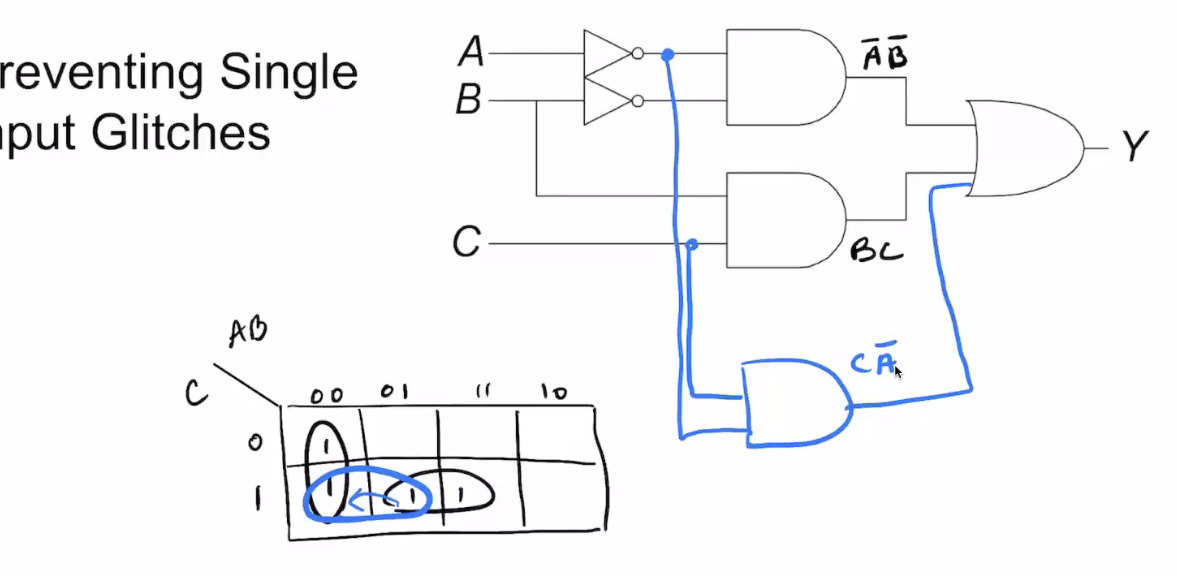 reventing Single
nput Glitches
A
B
C
A̅ B̅
BC
Y
C A̅
AB
C
00 01 11 10
0 1
1 1 1 1